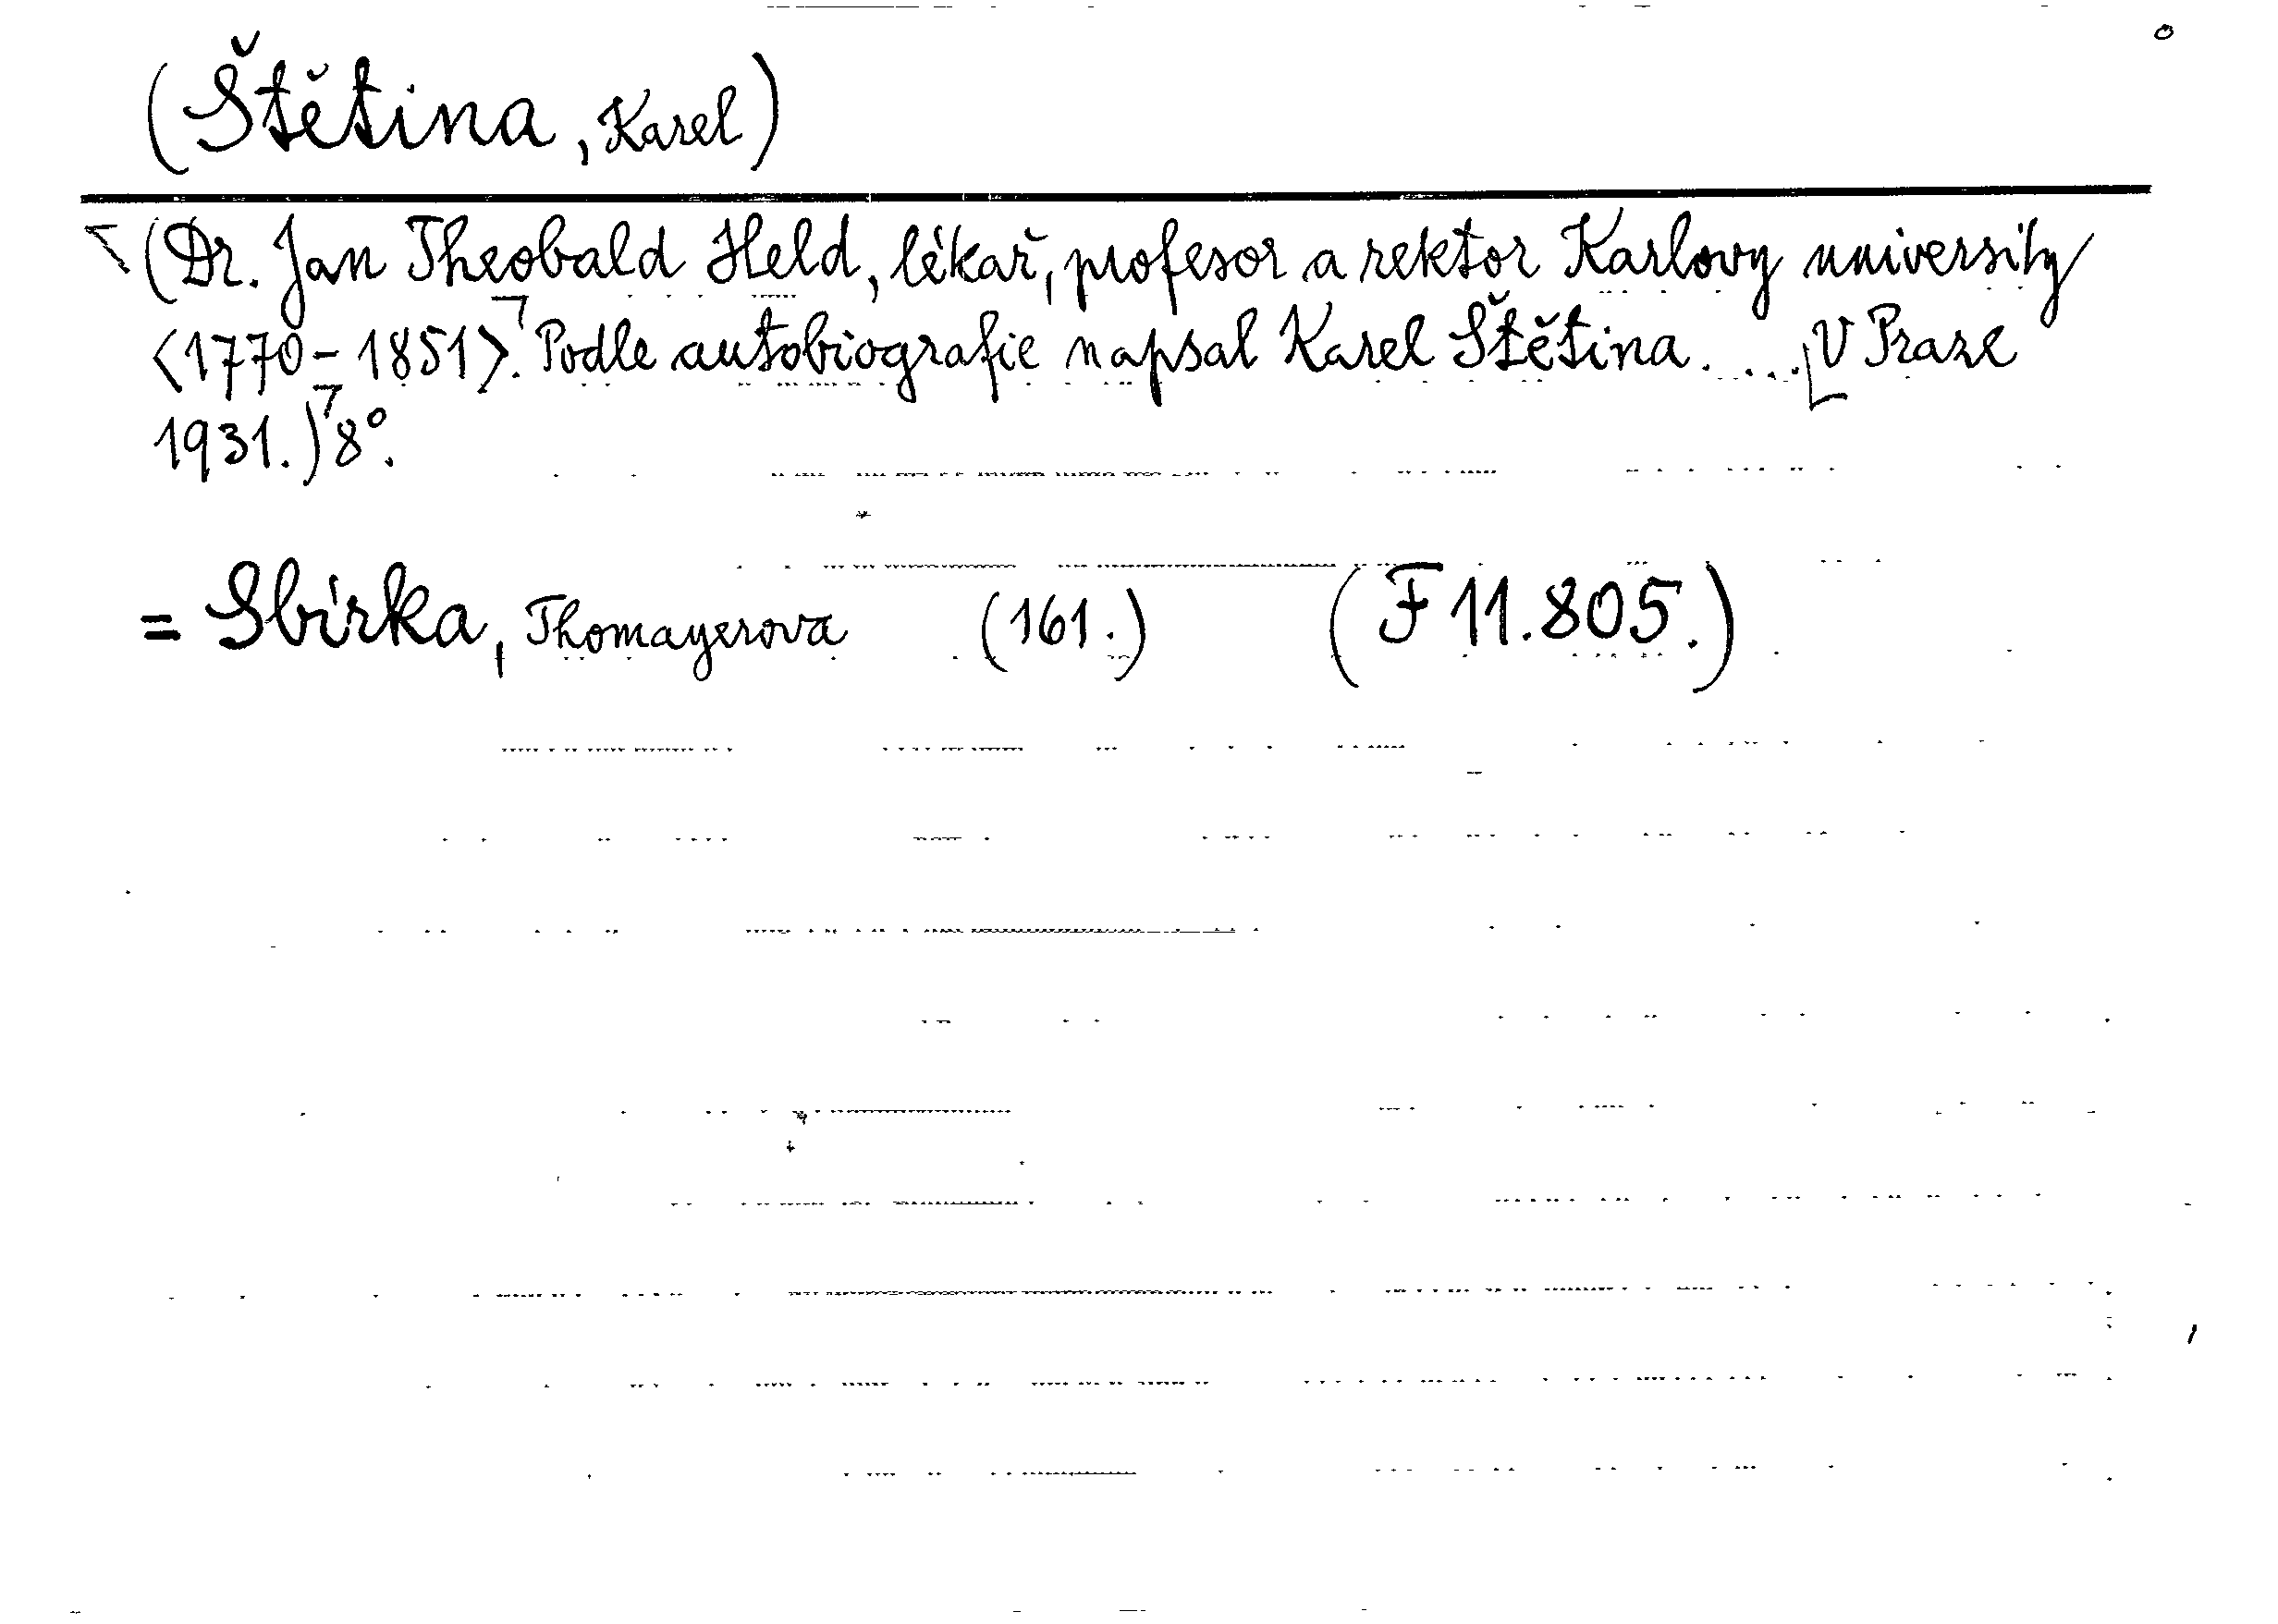 (Štětina, Karel)
(Dr. Jan Theobald Held, lékař, profesor a rektor Karlovy university
<1770-1851>. Podle autobiografie napsal Karel Štětina. ... V Praze
1931.) 8°.
= Sbírka, Thomayerova (161.) (F 11.805.)